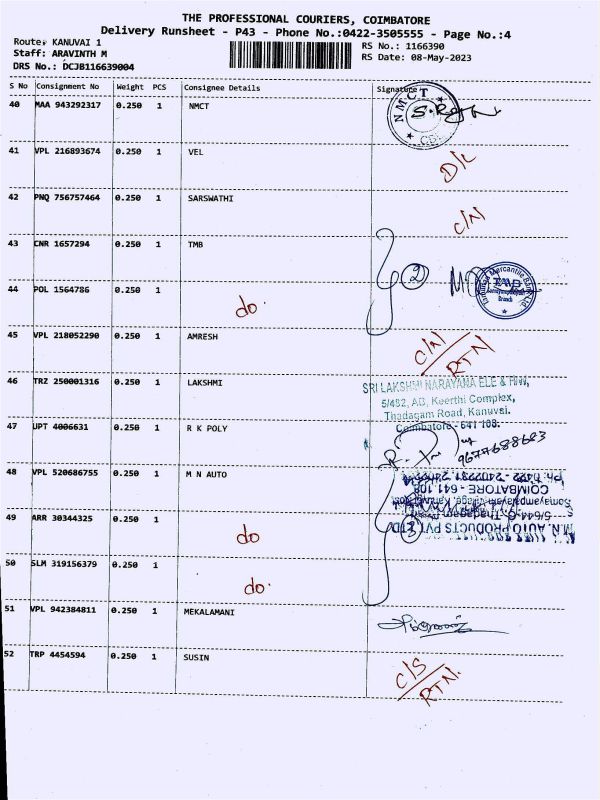 THE PROFESSIONAL COURIERS, COIMBATORE
Delivery Runsheet - P43 - Phone No.:0422-3505555 - Page No.:4
Route: KANUVAI 1
Staff: ARAVINTH M
DRS No.: DCJB116639004
RS No.: 1166390
RS Date: 08-May-2023
S No Consignment No Weight PCS Consignee Details Signature
40 MAA 943292317 0.250 1 NMCT
NMCT
41 VPL 216893674 0.250 1 VEL D/L
42 PNQ 756757464 0.250 1 SARSWATHI C/N
43 CNR 1657294 0.250 1 TMB
2
44 POL 1564786 0.250 1 do
45 VPL 218052290 0.250 1 AMRESH C/N
RTN
46 TRZ 250001316 0.250 1 LAKSHMI
SRI LAKSHMI NARAYANA ELE & H/W,
5/482, AD, Keerthi Complex,
Thadagam Road, Kanuvai.
Coimbatore - 641 108.
47 UPT 4006631 0.250 1 R K POLY
48 VPL 520686755 0.250 1 M N AUTO
M.N. AUTO PRODUCTS PVT LTD
COIMBATORE - 641 108
49 ARR 30344325 0.250 1 do
50 SLM 319156379 0.250 1 do
51 VPL 942384811 0.250 1 MEKALAMANI
52 TRP 4454594 0.250 1 SUSIN C/S
RTN.